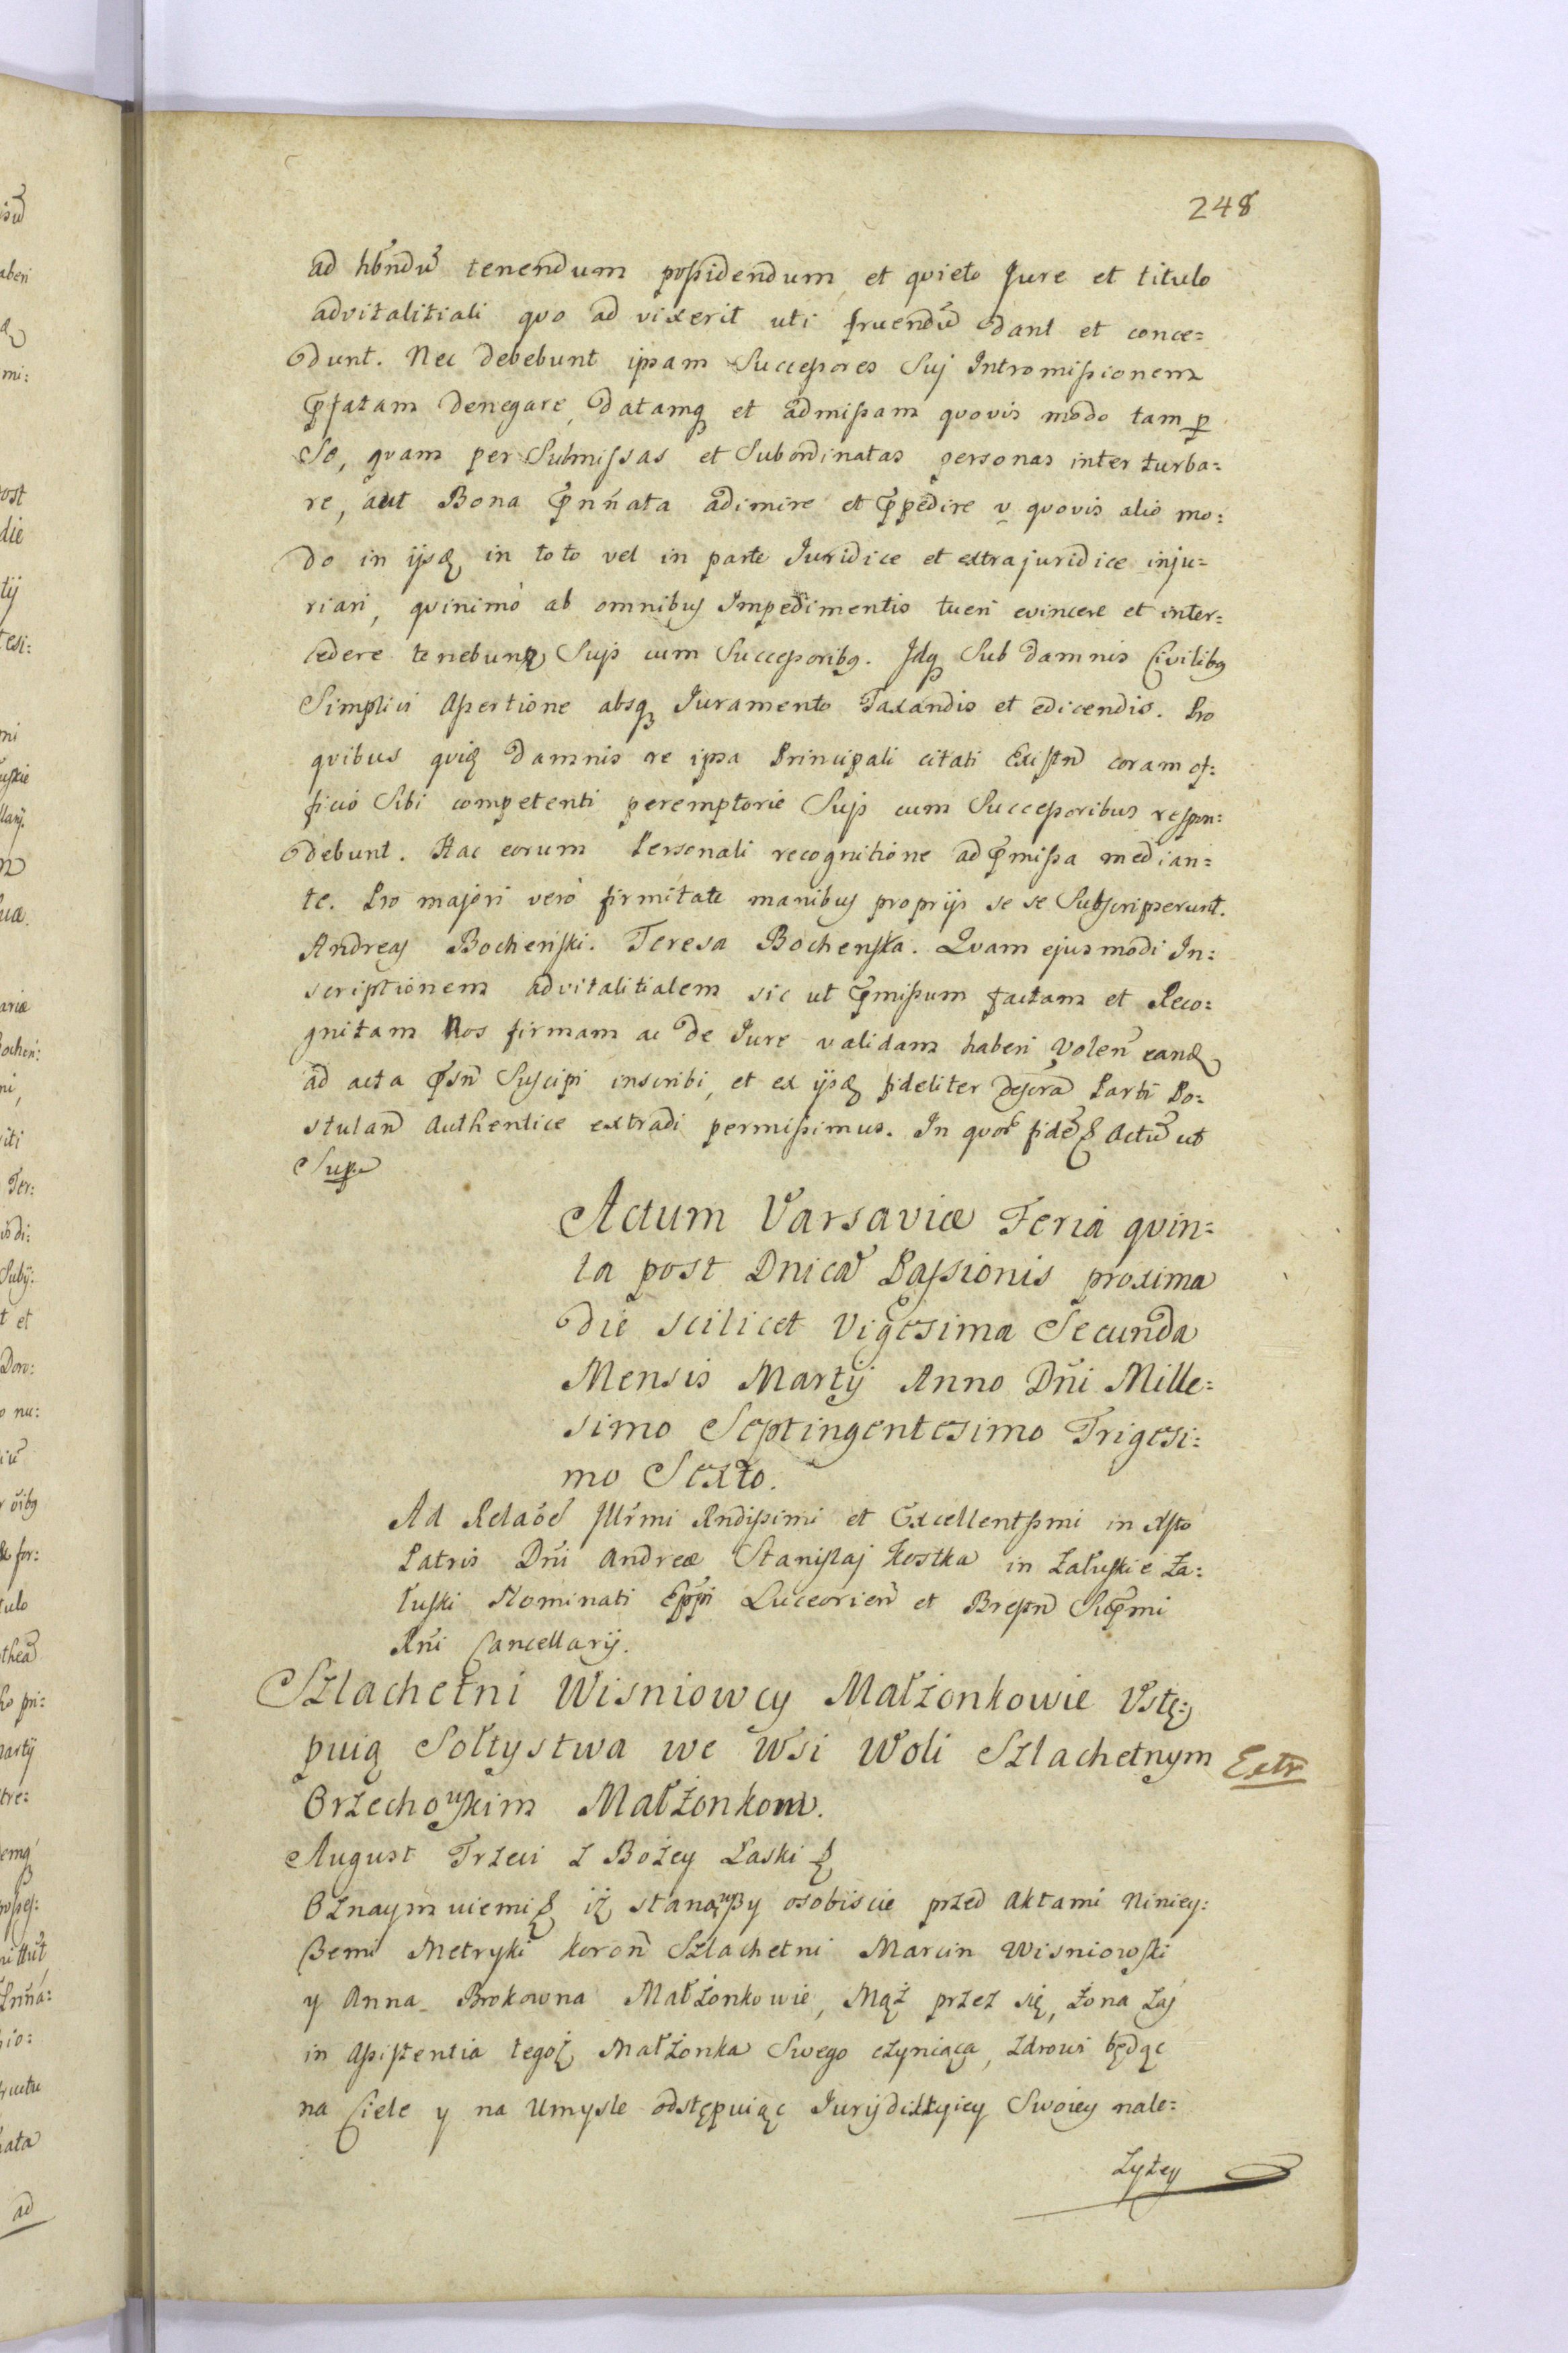 248
ad hbndũ tenendum possidendum, et qvieto Jure et titulo
advitalitiali qvo ad vixerit uti fruendũ dant et conce=
dunt. Nec debebunt ipsam Successores Suj Intromissionem
pfatam denegare, datamq et admissam qvovis modo tam p
Se, qvam per Submissas et Subordinatas personas inter turba=
re, aut Bona pnñata adimire et ppedire v qvovis alio mo:
do in ijsd in toto vel in parte Juridice et extrajuridice inju=
riari, qvinimò ab omnibus Impedimentis tueri evincere et inter=
cedere tenebunt Sujs cum Successoribq. Jdq Sub damnis Civilibq
Simplici Assertione absq Juramento Taxandis et edicendis. Pro
qvibus qvid damnis re ipsa Principali citati Existñ coram of:
ficio Sibi competenti peremptorie Sujs cum Successoribus respon:
debunt. Hac eorum Personali recognitione ad pmissa median=
te. Pro majori verò firmitate manibus proprijs se se Subscripserunt.
Andreas Bocheński. Teresa Bochenska. Qvam ejusmodi In:
scriptionem advitalitialem sic ut pmissum factam et Reco:
gnitam Nos firmam ac de Jure validam haberi Volen eand
ad acta psñ Suscipi inscribi, et ex ijsd fideliter descra Parti Po:
stulañ Authentice extradi permissimus. In qvor fidẽ & Actũ ut
Supra
Actum Varsaviæ Feria qvin=
ta post Dnicã Passionis proxima
die scilicet Vigesima Secunda
Mensis Martij Anno Dñi Mille=
simo Septingentesimo Trigesi:
mo Sexto.
Ad Relaõẽ Jllr̃mi Rndissimi et Excellentssmi in Xsto
Patris Dñi Andreæ Stanislaj Kostka in Załuskie Za:
łuski Nominati Eppi Luceorieñ et Brestñ Supmi
Rñi Cancellarij.
Szlachetni Wisniowcy Małżonkowie Vstę=
puią Sołtystwa we Wsi Woli Szlachetnym
Orzechowskim Małżonkom.
Extr
August Trzeci z Bożey Łaski &
Oznaymuiemi & iż stanąwszy osobiscie przed Aktami Niniey:
szemi Metryki Koroñ Szlachetni Marcin Wisniowski
y Anna Brokowna Małżonkowie, Mąż przez się, Żona zaś
in Assistentia tegoż Małżonka Swego czyniąca, zdrowi będąc
na Ciele y na Umysle odstępuiąc Jurÿdikcyicy Swoiey nale=
zyżey